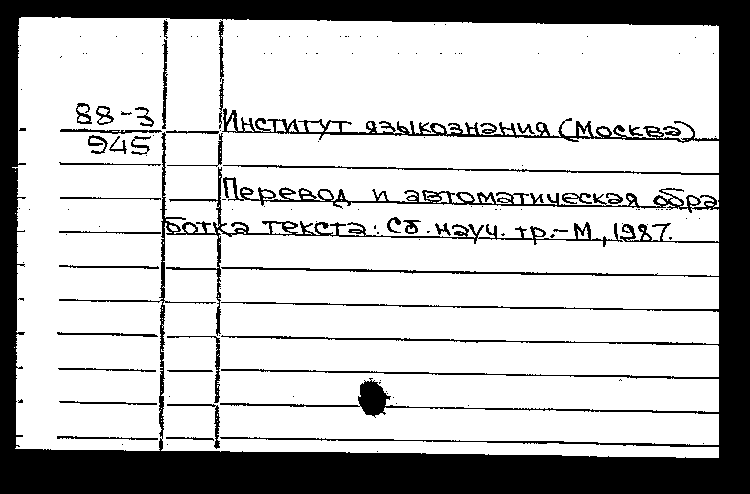 88-3
945
Институт языкознания (Москва)
Перевод и автоматическая обра
ботка текста: Сб. науч. тр.-М., 1987.